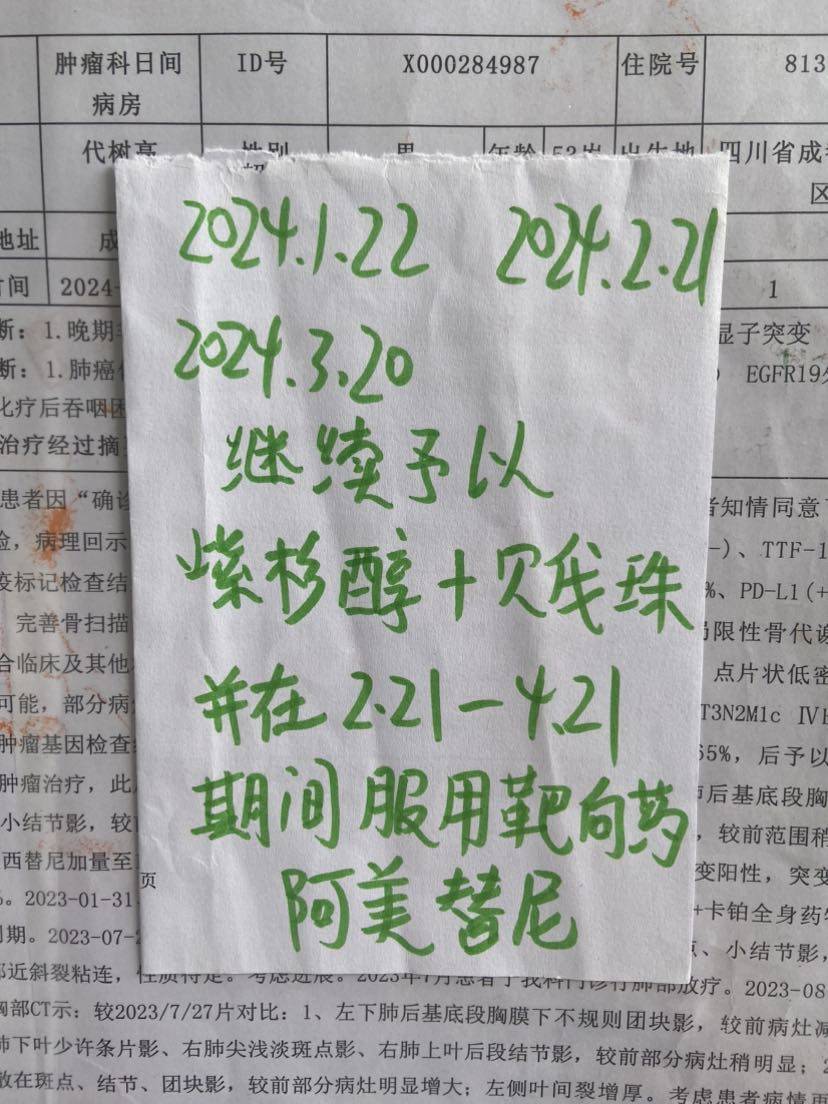 肿瘤科日间 ID号 X000284987 住院号 813
病房
代树亮 性别 男 年龄 53岁 出生地 四川省成
区
地址 成
时间 2024- 1
断：1.晚期 显子突变
断：1.肺癌 EGFR19
化疗后吞咽困
治疗经过摘
2024.1.22 2024.2.21
2024.3.20
继续予以
紫杉醇+贝伐珠
并在2.21—4.21
期间服用靶向药
阿美替尼
页
患者因“确诊 者知情同意
病理回示 -)、TTF-1
疫标记检查结 %、PD-L1(+
完善骨扫描 局限性骨代谢
合临床及其他 点片状低密
可能，部分病 T3N2M1c Ⅳ
肿瘤基因检查 65%，后予以
肿瘤治疗，此 后基底段胸
小结节影，较前 ，较前范围稍
西替尼加量至 变阳性，突变
。2023-01-31 +卡铂全身药
周期。2023-07-2 、小结节影，
部近斜裂粘连，性质待定。考虑进展。2023年7月患者于我科门诊行肺部放疗。2023-08
胸部CT示：较2023/7/27片对比：1、左下肺后基底段胸膜下不规则团块影，较前病灶减
肺下叶少许条片影、右肺尖浅淡斑点影、右肺上叶后段结节影，较前部分病灶稍明显；2
散在斑点、结节、团块影，较前部分病灶明显增大；左侧叶间裂增厚。考虑患者病情再